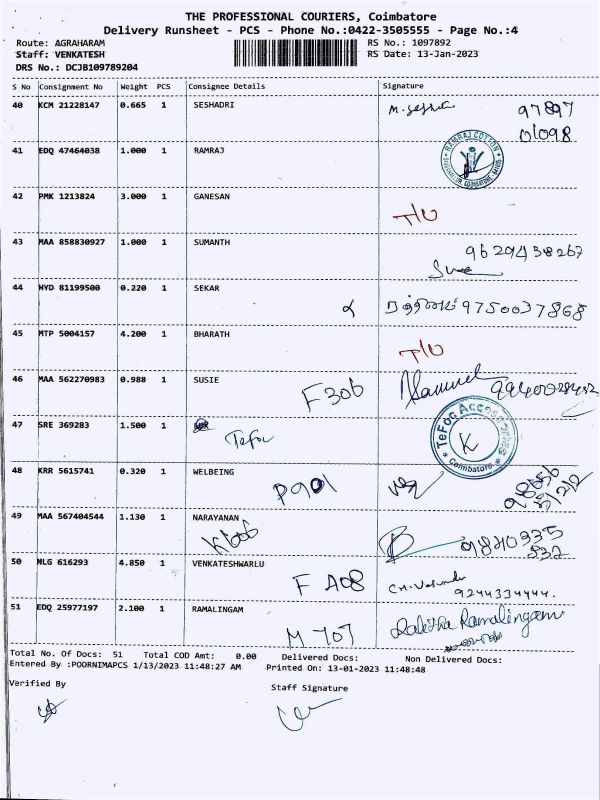 THE PROFESSIONAL COURIERS, Coimbatore
Delivery Runsheet - PCS - Phone No.:0422-3505555 - Page No.:4
Route: AGRAHARAM RS No.: 1097892
Staff: VENKATESH RS Date: 13-Jan-2023
DRS No.: DCJB109789204
S No Consignment No Weight PCS Consignee Details Signature
40 KCM 21228147 0.665 1 SESHADRI 97897
01098
41 EDQ 47464038 1.000 1 RAMRAJ RAMRAJ COTTON
42 PMK 1213824 3.000 1 GANESAN T/U
43 MAA 858830927 1.000 1 SUMANTH
44 HYD 81199500 0.220 1 SEKAR 9750037868
45 MTP 5004157 4.200 1 BHARATH T/U
46 MAA 562270983 0.988 1 SUSIE F306 Samuel
47 SRE 369283 1.500 1 TeFog Accessories Coimbatore
48 KRR 5615741 0.320 1 WELBEING P901
49 MAA 567404544 1.130 1 NARAYANAN
50 NLG 616293 4.850 1 VENKATESHWARLU F A08
9244334444.
51 EDQ 25977197 2.100 1 RAMALINGAM M 707 Lalitha Ramalingam
Total No. Of Docs: 51 Total COD Amt: 0.00 Delivered Docs: Non Delivered Docs:
Entered By :POORNIMAPCS 1/13/2023 11:48:27 AM Printed On: 13-01-2023 11:48:48
Verified By Staff Signature